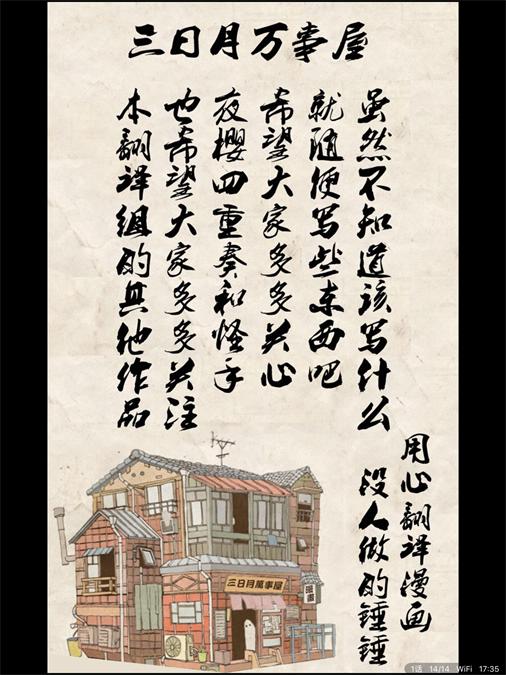 三日月万事屋
虽然不知道该写什么
就随便写些东西吧
希望大家多多关心
夜樱四重奏和怪手
也希望大家多多关注
本翻译组的其他作品
用心翻译漫画
没人做的锤锤
三日月萬事屋
漫畫
1话 14/14 WiFi 17:35